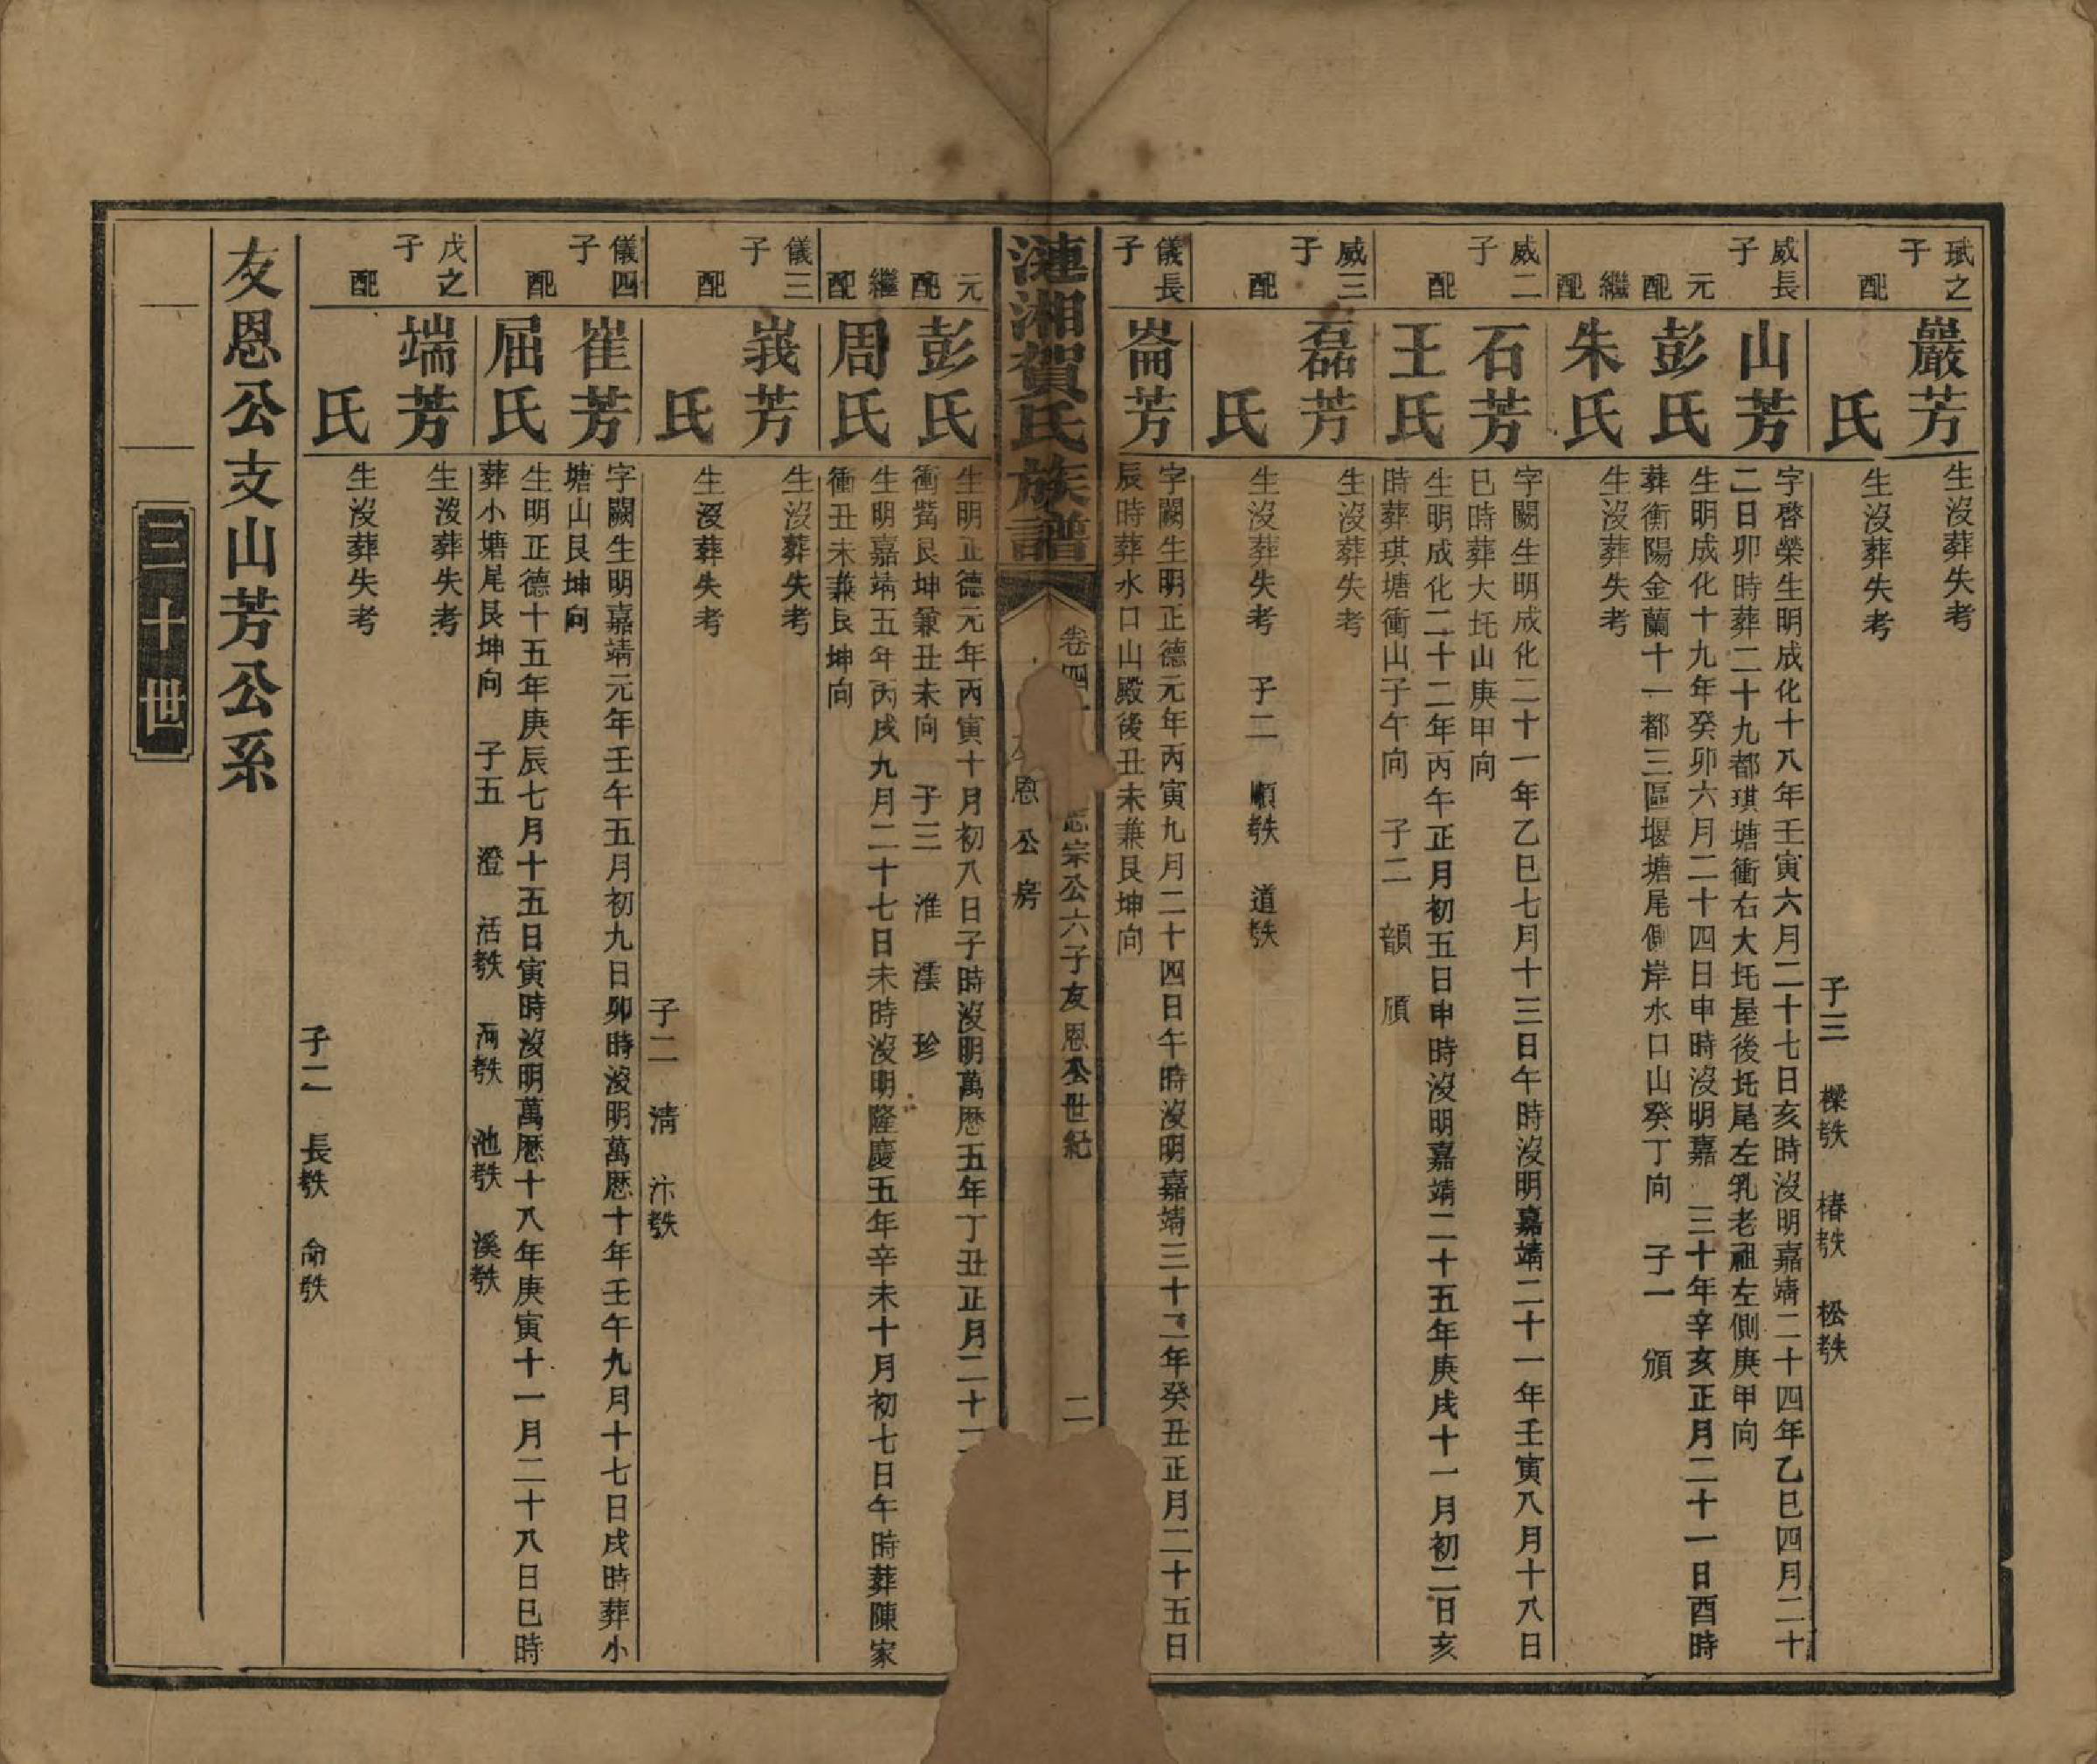 珷之子
巖芳
生沒葬失考
配
氏
生沒葬失考
子三 樑殀 椿殀 松殀
威長子
山芳
字啓榮生明成化十八年壬寅六月二十七日亥時沒明嘉靖二十四年乙巳四月二十
二日卯時葬二十九都琪塘衝右大坵屋後坵尾左乳老祖左側庚甲向
元配
彭氏
生明成化十九年癸卯六月二十四日申時沒明嘉 三十年辛亥正月二十一日酉時
葬衡陽金蘭十一都三區堰塘尾側岸水口山癸丁向 子一 頒
繼配
朱氏
生沒葬失考
威二子
石芳
字闕生明成化二十一年乙巳七月十三日午時沒明嘉靖二十一年壬寅八月十八日
巳時葬大坵山庚甲向
配
王氏
生明成化二十二年丙午正月初五日申時沒明嘉靖二十五年庚戌十一月初二日亥
時葬琪塘衝山子午向 子二 韻 頎
威三子
磊芳
生沒葬失考
配
氏
生沒葬失考 子二 順殀 道殀
儀長子
崙芳
字闕生明正德元年丙寅九月二十四日午時沒明嘉靖三十二年癸丑正月二十五日
辰時葬水口山殿後丑未兼艮坤向
漣湘賀氏族譜
卷四
志宗公六子友恩公世紀
二
恩公房
元配
彭氏
生明正德元年丙寅十月初八日子時沒明萬歷五年丁丑正月二十
衝觜艮坤兼丑未向 子三 淮 澐 珍
繼配
周氏
生明嘉靖五年丙戌九月二十七日未時沒明隆慶五年辛未十月初七日午時葬陳家
衝丑未兼艮坤向
儀三子
峩芳
生沒葬失考
配
氏
生沒葬失考
子二 清 汴殀
儀四子
崔芳
字闕生明嘉靖元年壬午五月初九日卯時沒明萬歷十年壬午九月十七日戌時葬小
塘山艮坤向
配
屈氏
生明正德十五年庚辰七月十五日寅時沒明萬歷十八年庚寅十一月二十八日巳時
葬小塘尾艮坤向 子五 澄 活殀 海殀 池殀 溪殀
戊之子
端芳
生沒葬失考
配
氏
生沒葬失考
子二 長殀 命殀
友恩公支山芳公系
三十世